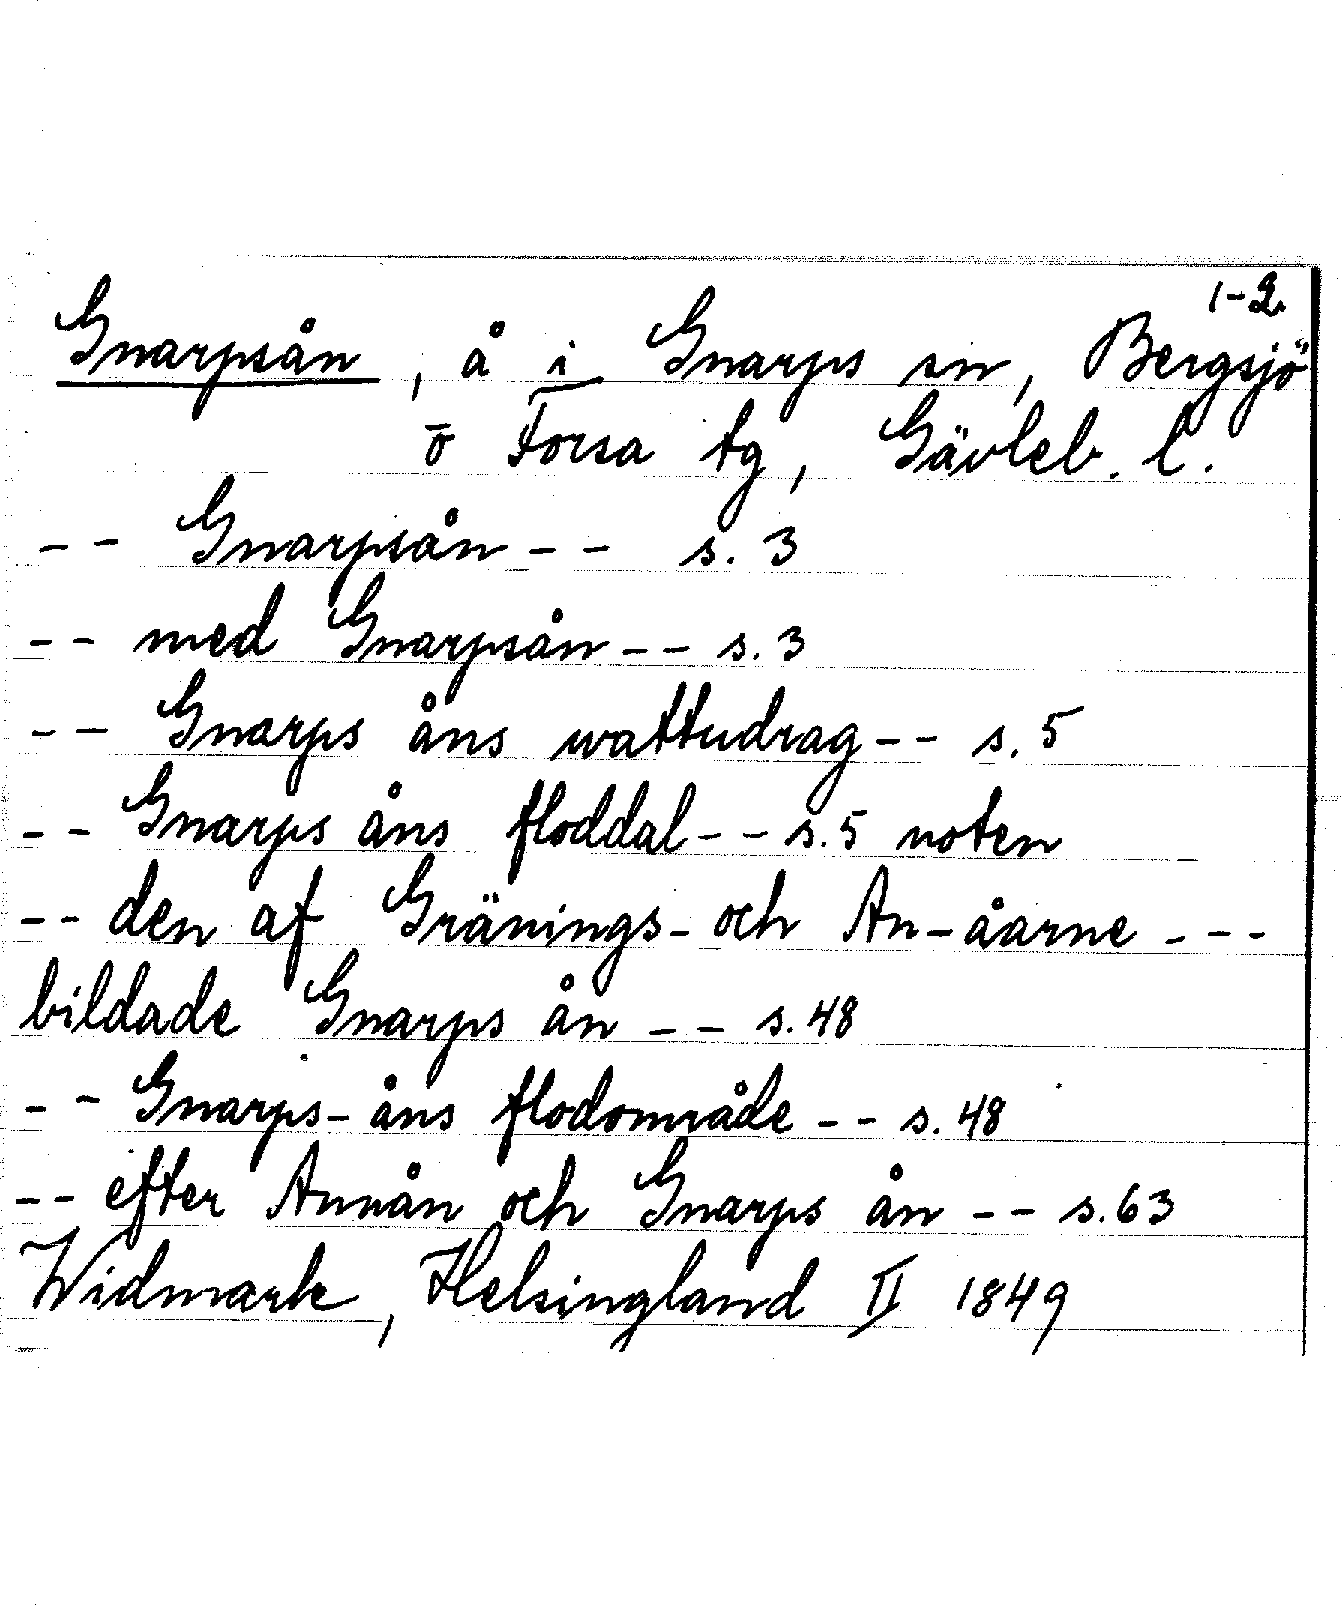 1-2.
Gnarpsån, å i Gnarps sn, Bergsjö
o Forsa tg, Gävleb. l.
-- Gnarpsån -- s. 3
-- med Gnarpsån -- s. 3
-- Gnarps åns wattudrag -- s. 5
-- Gnarps åns floddal -- s. 5 noten
-- den af Gränings- och An-åarne ---
bildade Gnarps ån -- s. 48
-- Gnarps-åns flodområde -- s. 48
-- efter Annån och Gnarps ån -- s. 63
Widmark, Helsingland II 1849